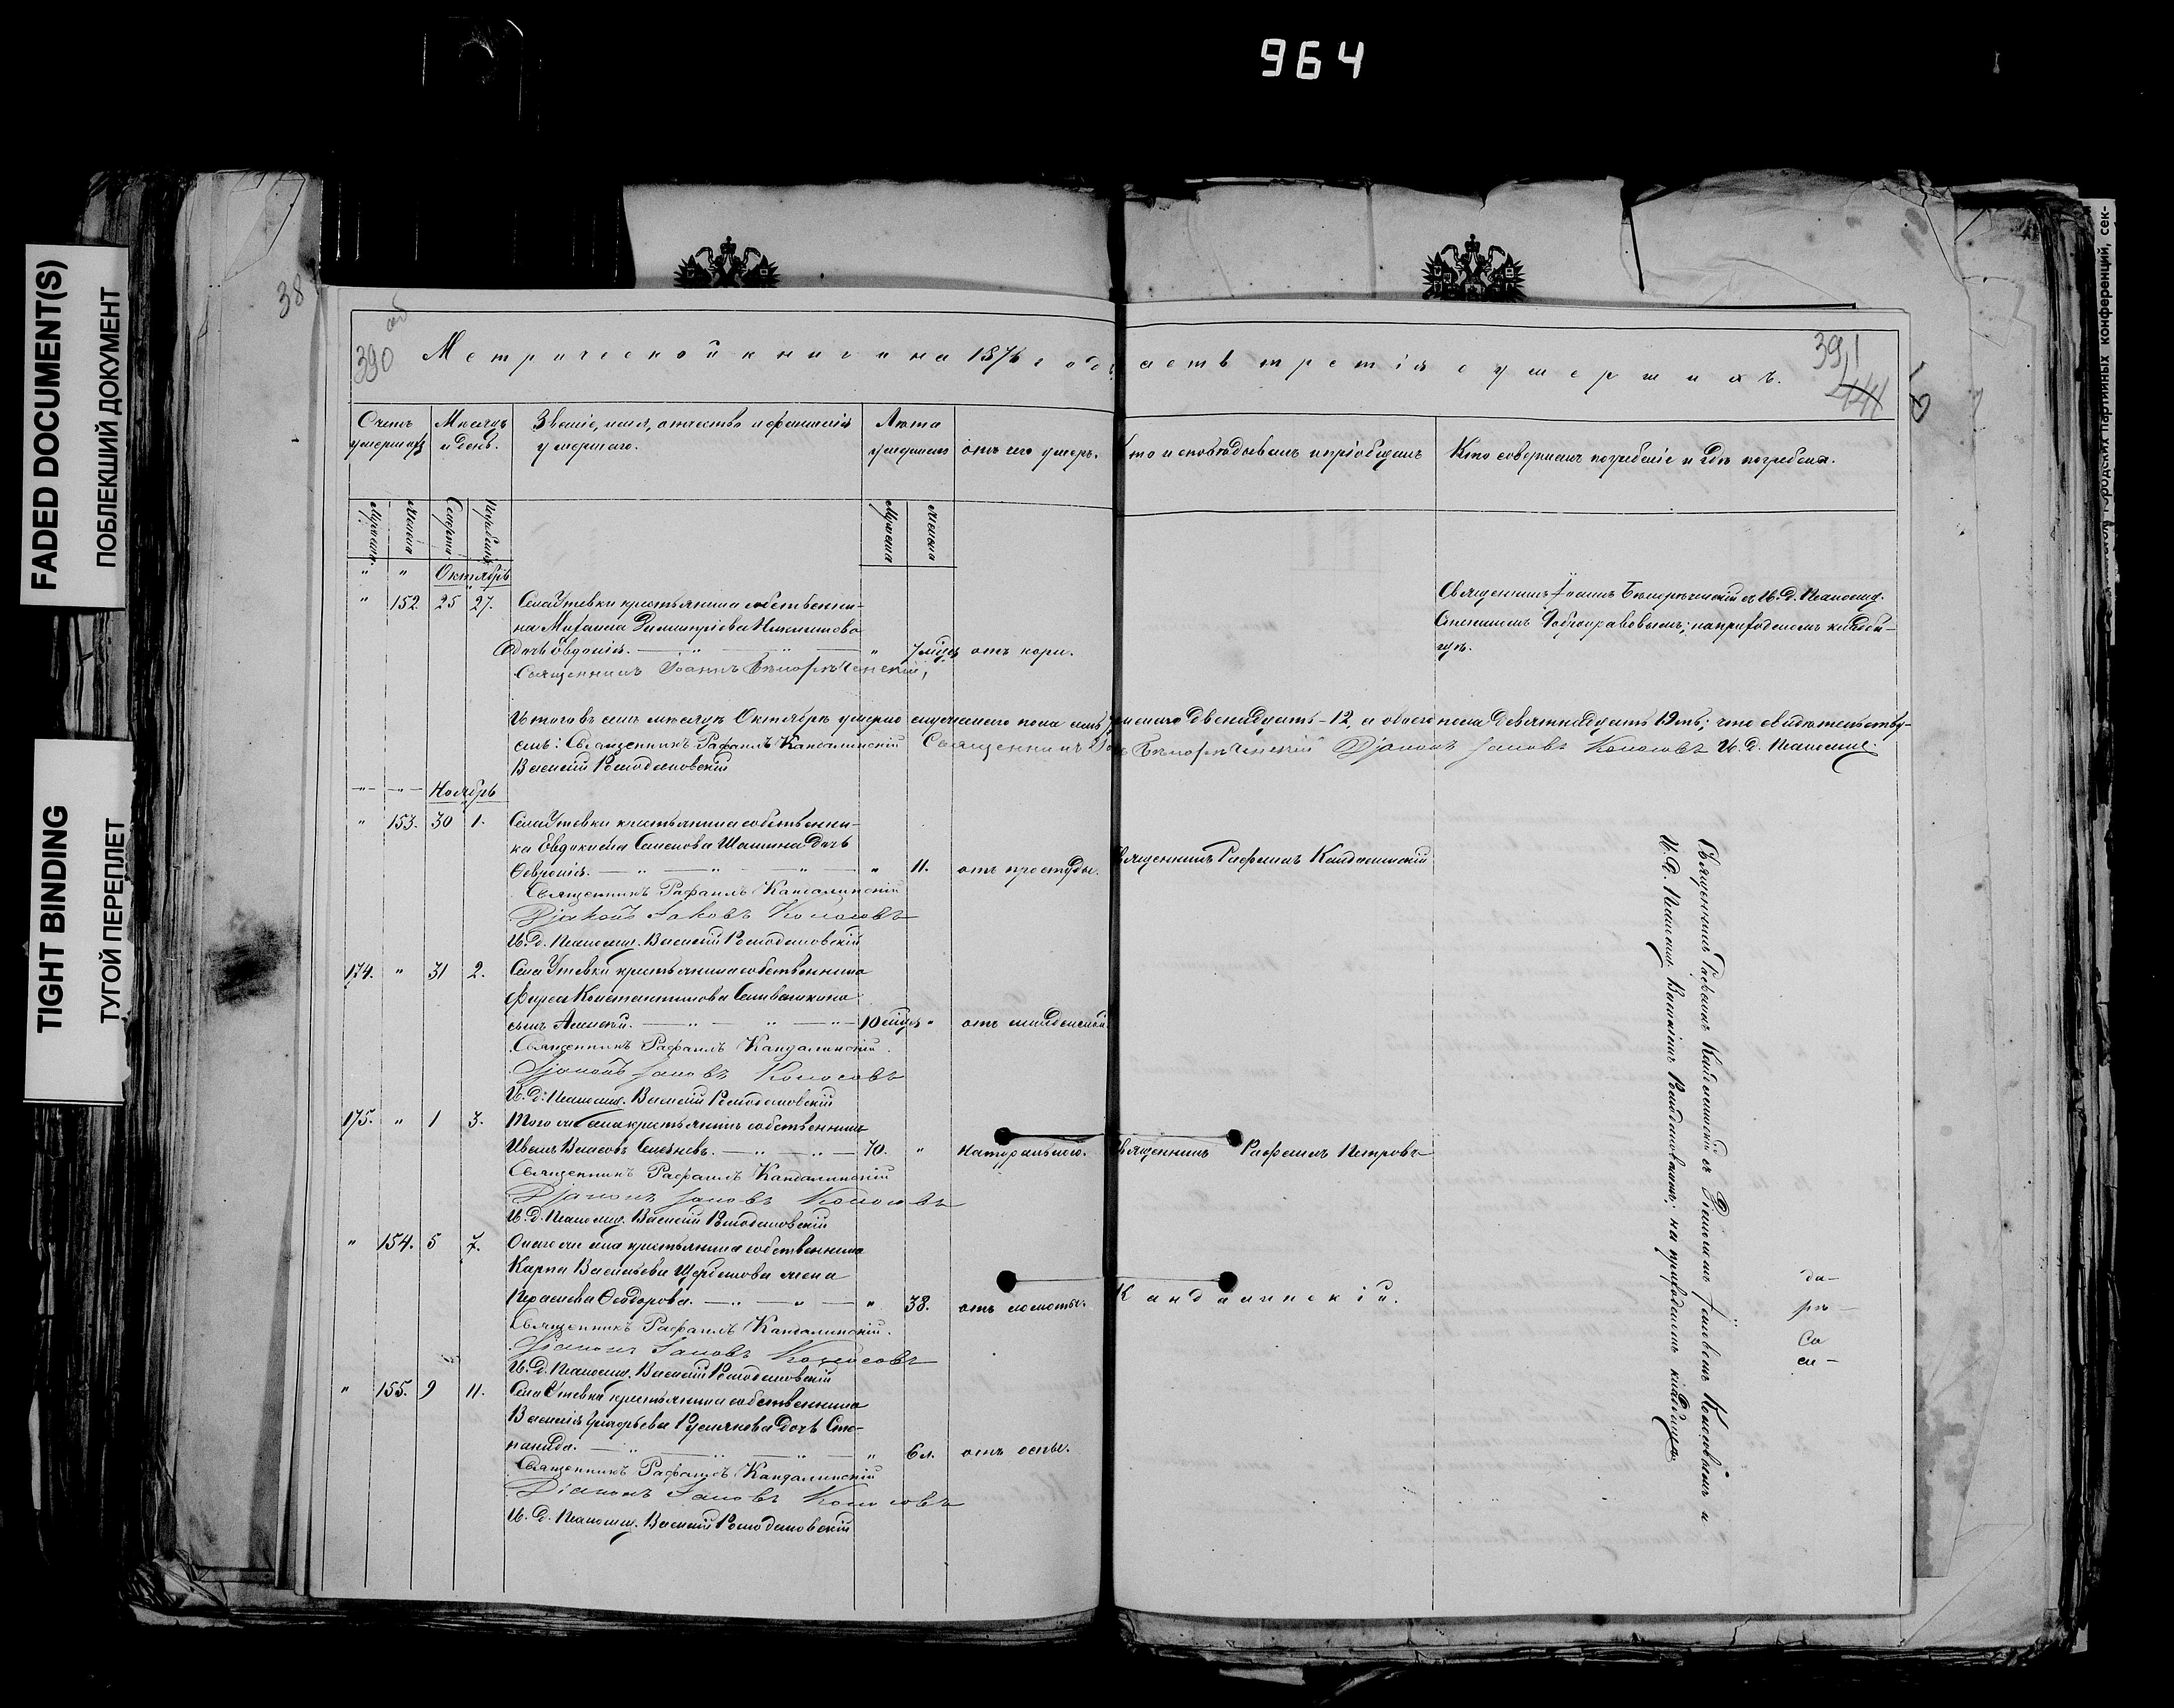 964
FADED DOCUMENT(S)
ПОБЛЕКШИЙ ДОКУМЕНТ
TIGHT BINDING
ТУГОЙ ПЕРЕПЛЕТ
родских партийных конференций, сек-
38
390 об
391
Метрической книги на 1876 годъ часть третія о умершихъ.
Счетъ умершихъ
Мѣсяцъ и день.
Званіе, имя, отчество и фамилія умершаго.
Лѣта умершаго
отъ чего умеръ.
Кто исповѣдывалъ и пріобщалъ
Кто совершалъ погребеніе и гдѣ погребены.
Мужеска
Женска
Смерти
Погребенія
Мужеска
Женска
" " Октябрь
" 152. 25 27. Села Утевки крестьянина собственни-
ка Михаила Димитріева Никитова
дочь Евдокія. " 7 мцв отъ кори.
Священникъ Іоаннъ Бѣлорѣченскій,
Священникъ Іоаннъ Бѣлорѣченскій съ И. д. Псаломщ.
на приходскомъ кладби-
щѣ.
Итого въ семъ мѣсяцѣ Октябрѣ умерло мужескаго пола семь, женскаго двенадцать - 12, а обоего пола девятнадцать 19ть; что свидѣтельству-
емъ: Священникъ Рафаилъ Кандалинскій Священникъ Іоаннъ Бѣлорѣченскій Діаконъ Іаковъ Колосовъ И. д. Псаломщ.
Василій Ромодановскій
Ноябрь
" 153. 30 1. Села Утевки крестьянина собственни-
ка Евдокима Семенова Шашина дочь
Февронія. " 11. отъ простуды. Священникъ Рафаилъ Кандалинскій
Священникъ Рафаилъ Кандалинскій
Діаконъ Іаковъ Колосовъ
И. д. Псаломщ. Василій Ромодановскій
174. " 31 2. Села Утевки крестьянина собственника
Фирса Константинова Селивашкина
сынъ Алексѣй. 10 мцв " отъ младенской
Священникъ Рафаилъ Кандалинскій.
Діаконъ Іаковъ Колосовъ
И. д. Псаломщ. Василій Ромодановскій
175. " 1 3. Того же села крестьянинъ собственникъ
Иванъ Власовъ 70. " натурально. Священникъ Рафаилъ Петровъ
Священникъ Рафаилъ Кандалинскій
Діаконъ Іаковъ Колосовъ
И. д. Псаломщ. Василій Ромодановскій
" 154. 5 7. Онаго же села крестьянина собственника
Карпа Васильева Щербакова жена
Прасковья Ѳеодорова. " 38. отъ ломоты. Кандалинскій.
Священникъ Рафаилъ Кандалинскій.
Діаконъ Іаковъ Колосовъ
И. д. Псаломщ. Василій Ромодановскій
" 155. 9 11. Села Утевки крестьянина собственника
Василія Григорьева Русякова дочь Сте-
панида. " 6 л. отъ оспы.
Священникъ Рафаилъ Кандалинскій
Діаконъ Іаковъ Колосовъ
И. д. Псаломщ. Василій Ромодановскій
Священникъ Рафаилъ Кандалинскій съ Діакономъ Іаковомъ Колосовымъ и
И. д. Псаломщ. Василіемъ Ромодановскимъ; на приходскомъ кладбищѣ.